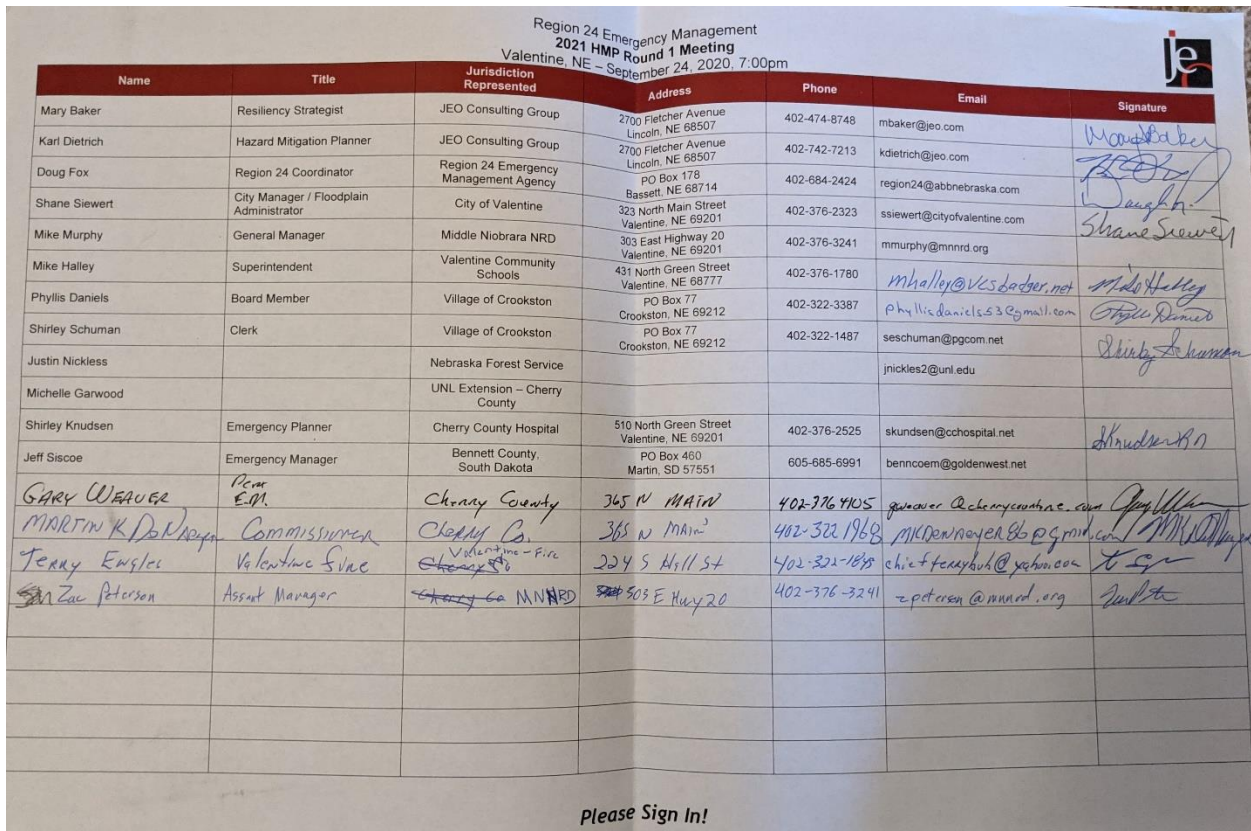 Region 24 Emergency Management
2021 HMP Round 1 Meeting
Valentine, NE – September 24, 2020, 7:00pm
je
Name Title Jurisdiction Represented Address Phone Email Signature
Mary Baker Resiliency Strategist JEO Consulting Group 2700 Fletcher Avenue Lincoln, NE 68507 402-474-8748 mbaker@jeo.com Mary Baker
Karl Dietrich Hazard Mitigation Planner JEO Consulting Group 2700 Fletcher Avenue Lincoln, NE 68507 402-742-7213 kdietrich@jeo.com
Doug Fox Region 24 Coordinator Region 24 Emergency Management Agency PO Box 178 Bassett, NE 68714 402-684-2424 region24@abbnebraska.com
Shane Siewert City Manager / Floodplain Administrator City of Valentine 323 North Main Street Valentine, NE 69201 402-376-2323 ssiewert@cityofvalentine.com Shane Siewert
Mike Murphy General Manager Middle Niobrara NRD 303 East Highway 20 Valentine, NE 69201 402-376-3241 mmurphy@mnnrd.org
Mike Halley Superintendent Valentine Community Schools 431 North Green Street Valentine, NE 68777 402-376-1780 mhalley@vcsbadger.net Mike Halley
Phyllis Daniels Board Member Village of Crookston PO Box 77 Crookston, NE 69212 402-322-3387 phyllisdaniels53@gmail.com Phyllis Daniels
Shirley Schuman Clerk Village of Crookston PO Box 77 Crookston, NE 69212 402-322-1487 seschuman@pgcom.net Shirley Schuman
Justin Nickless Nebraska Forest Service jnickles2@unl.edu
Michelle Garwood UNL Extension – Cherry County
Shirley Knudsen Emergency Planner Cherry County Hospital 510 North Green Street Valentine, NE 69201 402-376-2525 skundsen@cchospital.net SKnudsen RN
Jeff Siscoe Emergency Manager Bennett County, South Dakota PO Box 460 Martin, SD 57551 605-685-6991 benncoem@goldenwest.net
GARY WEAVER E.M. Cherry County 365 N MAIN 402-376 4105
MARTIN K Commissioner Cherry Co. 365 N MAIN 402-322 1968
Terry Valentine Fire Valentine-Fire 224 S Hall St 402-322-1848
Zac Peterson Assant Manager MNNRD 303 E Hwy 20 402-376-3241 zpeterson@mnnrd.org
Please Sign In!